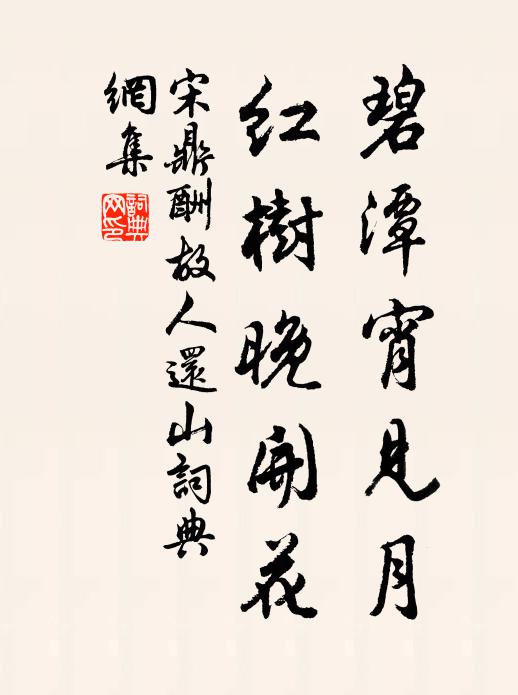 碧潭宵見月
紅樹晚開花
宋鼎酬故人還山詞典
網集
詞典网印